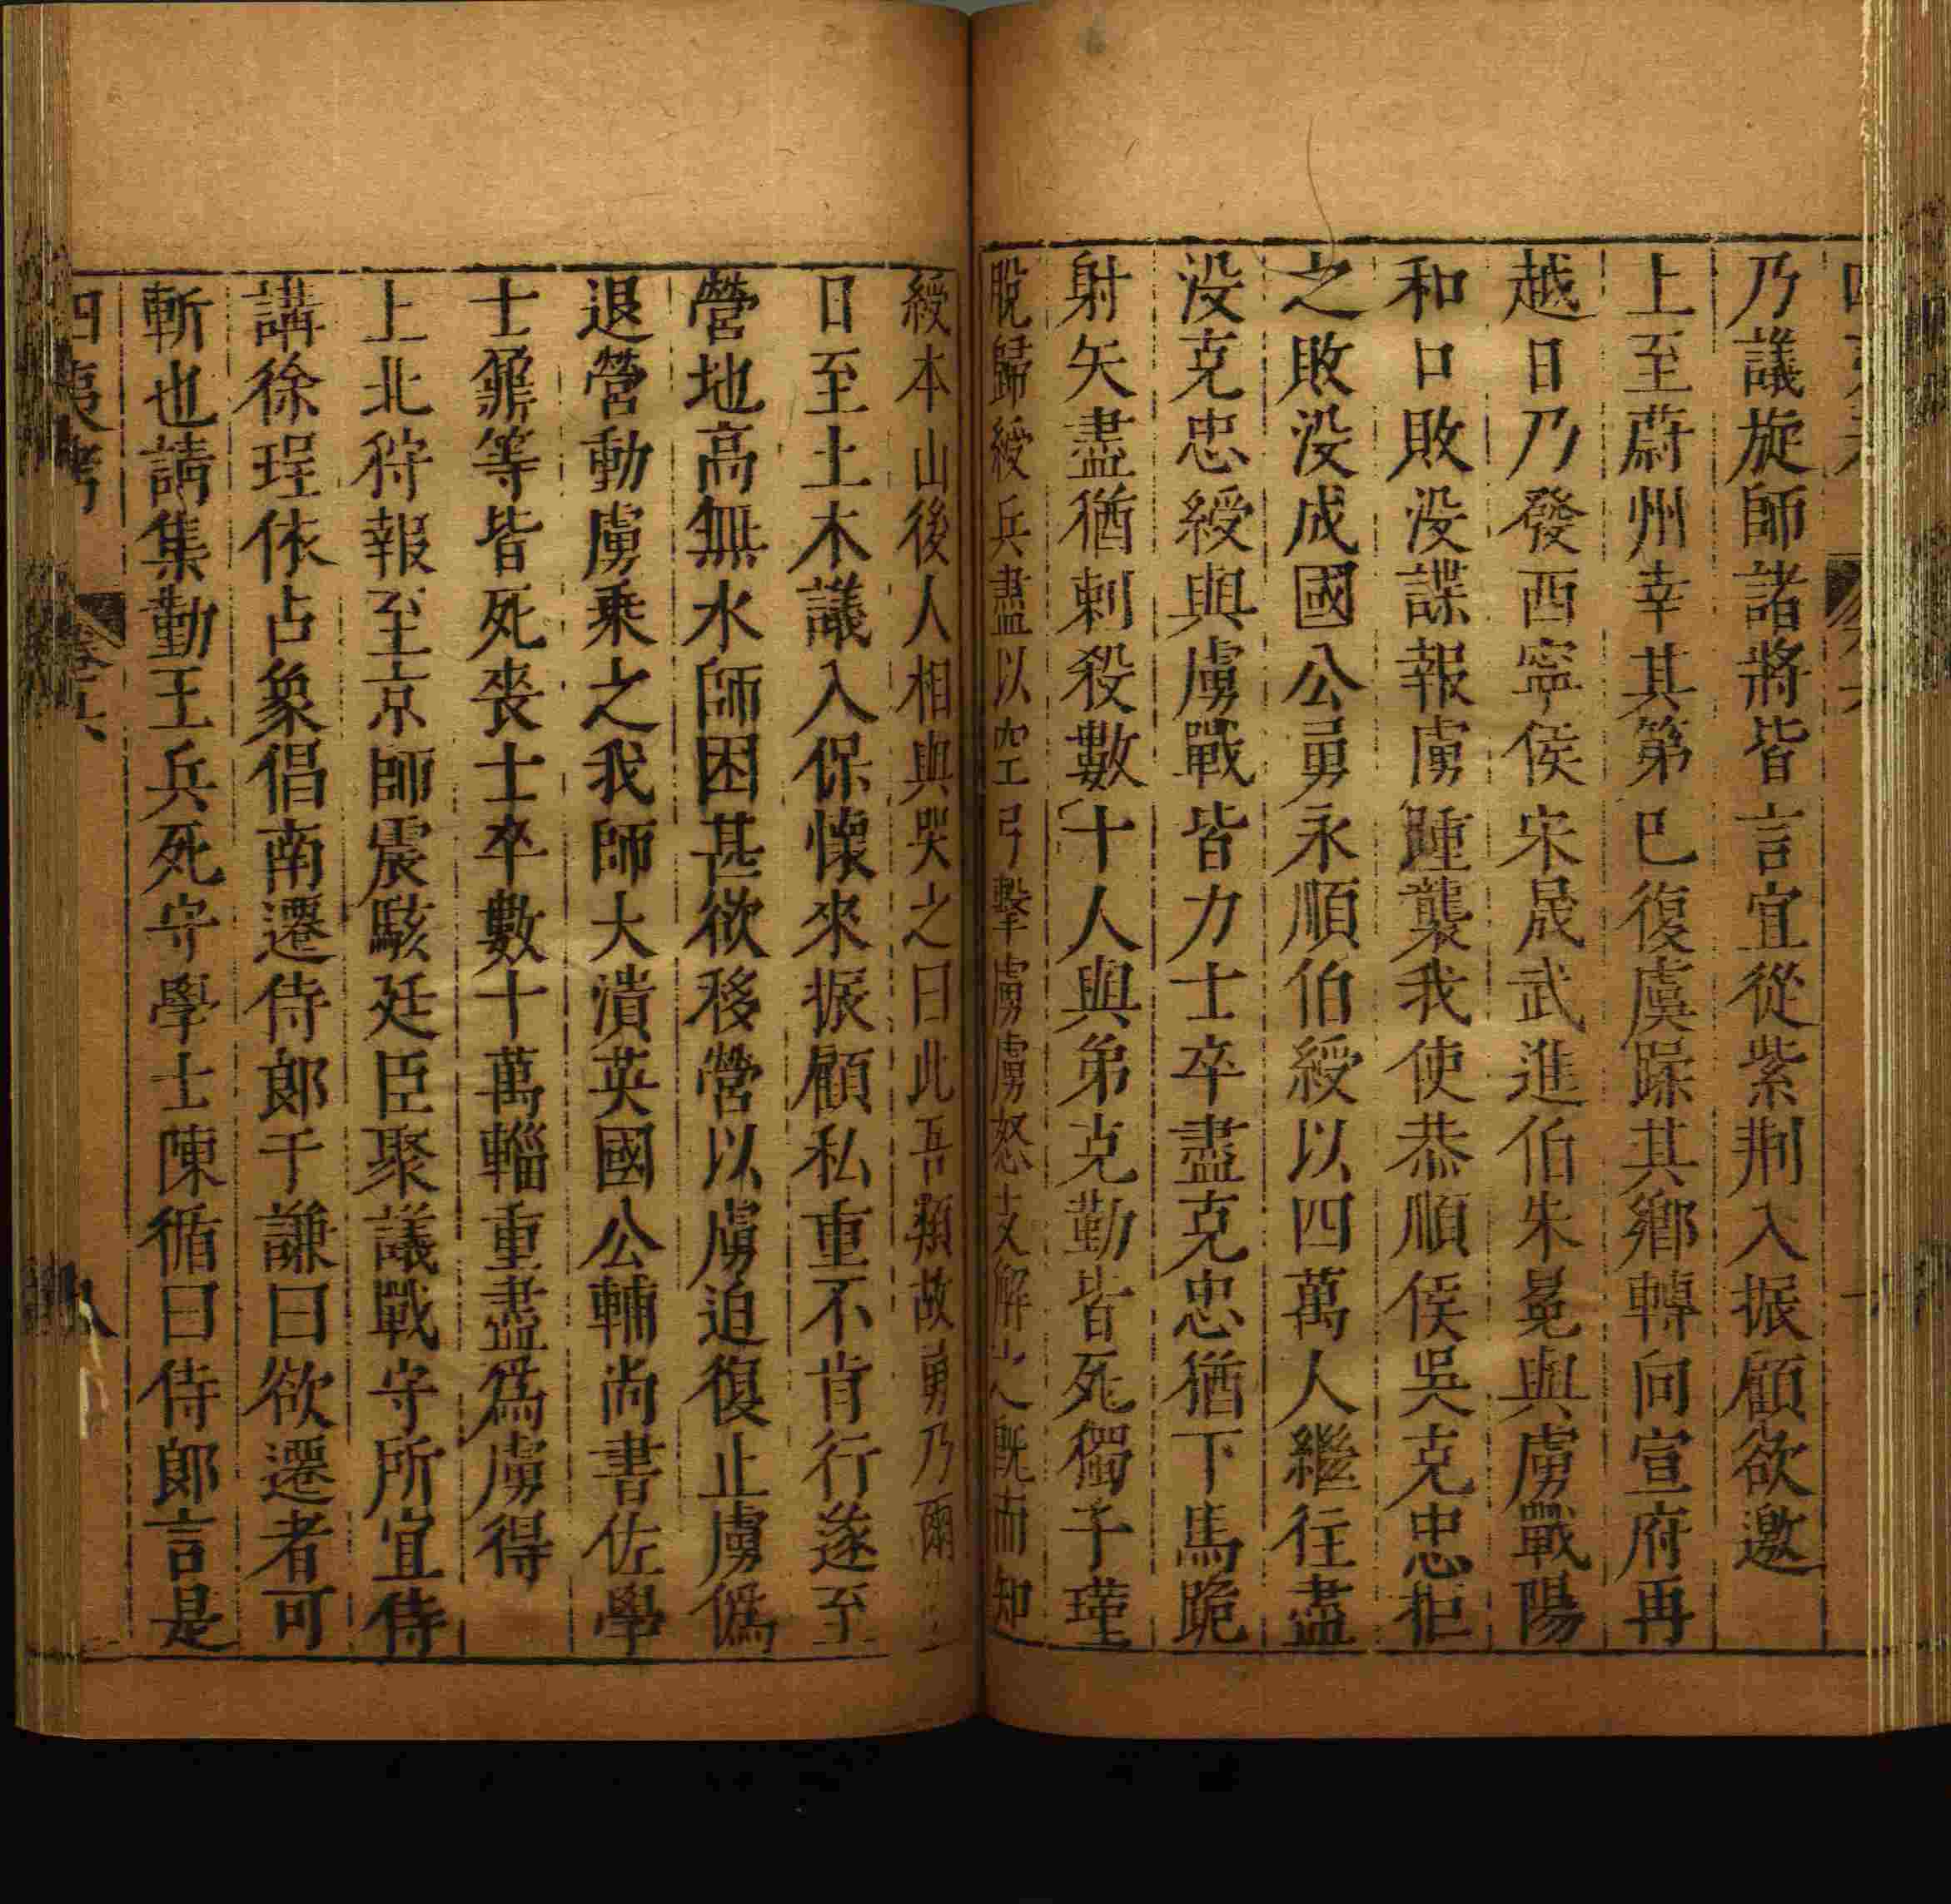 乃議旋師諸將皆言宜從紫荆入振顧欲邀
上至蔚州幸其第巳復虞躁其鄉轉向宣府再
越日乃發西寧侯宋晟武進伯朱冕與虜戰陽
和口敗没諜報虜踵襲我使恭順侯吳克忠拒
之敗没成國公勇永順伯綬以四萬人繼往盡
没克忠綬與虜戰皆力士卒盡克忠猶下馬跪
射矢盡猶刺殺數十人與弟克勤皆死獨子瑾
脫歸綬兵盡以空弓擊虜虜怒支解之既而知
綬本山後人相與哭之曰此吾類故勇乃爾
日至土木議入保懷來振顧私重不肯行遂至
營地高無水師困甚欲移營以虜迫復止虜僞
退營動虜乘之我師大潰英國公輔尚書佐學
士鼐等皆死喪士卒數十萬輜重盡爲虜得
上北狩報至京師震駭廷臣聚議戰守所宜侍
講徐珵依占象倡南遷侍郎于謙曰欲遷者可
斬也請集勤王兵死守學士陳循曰侍郎言是
四夷考 卷六